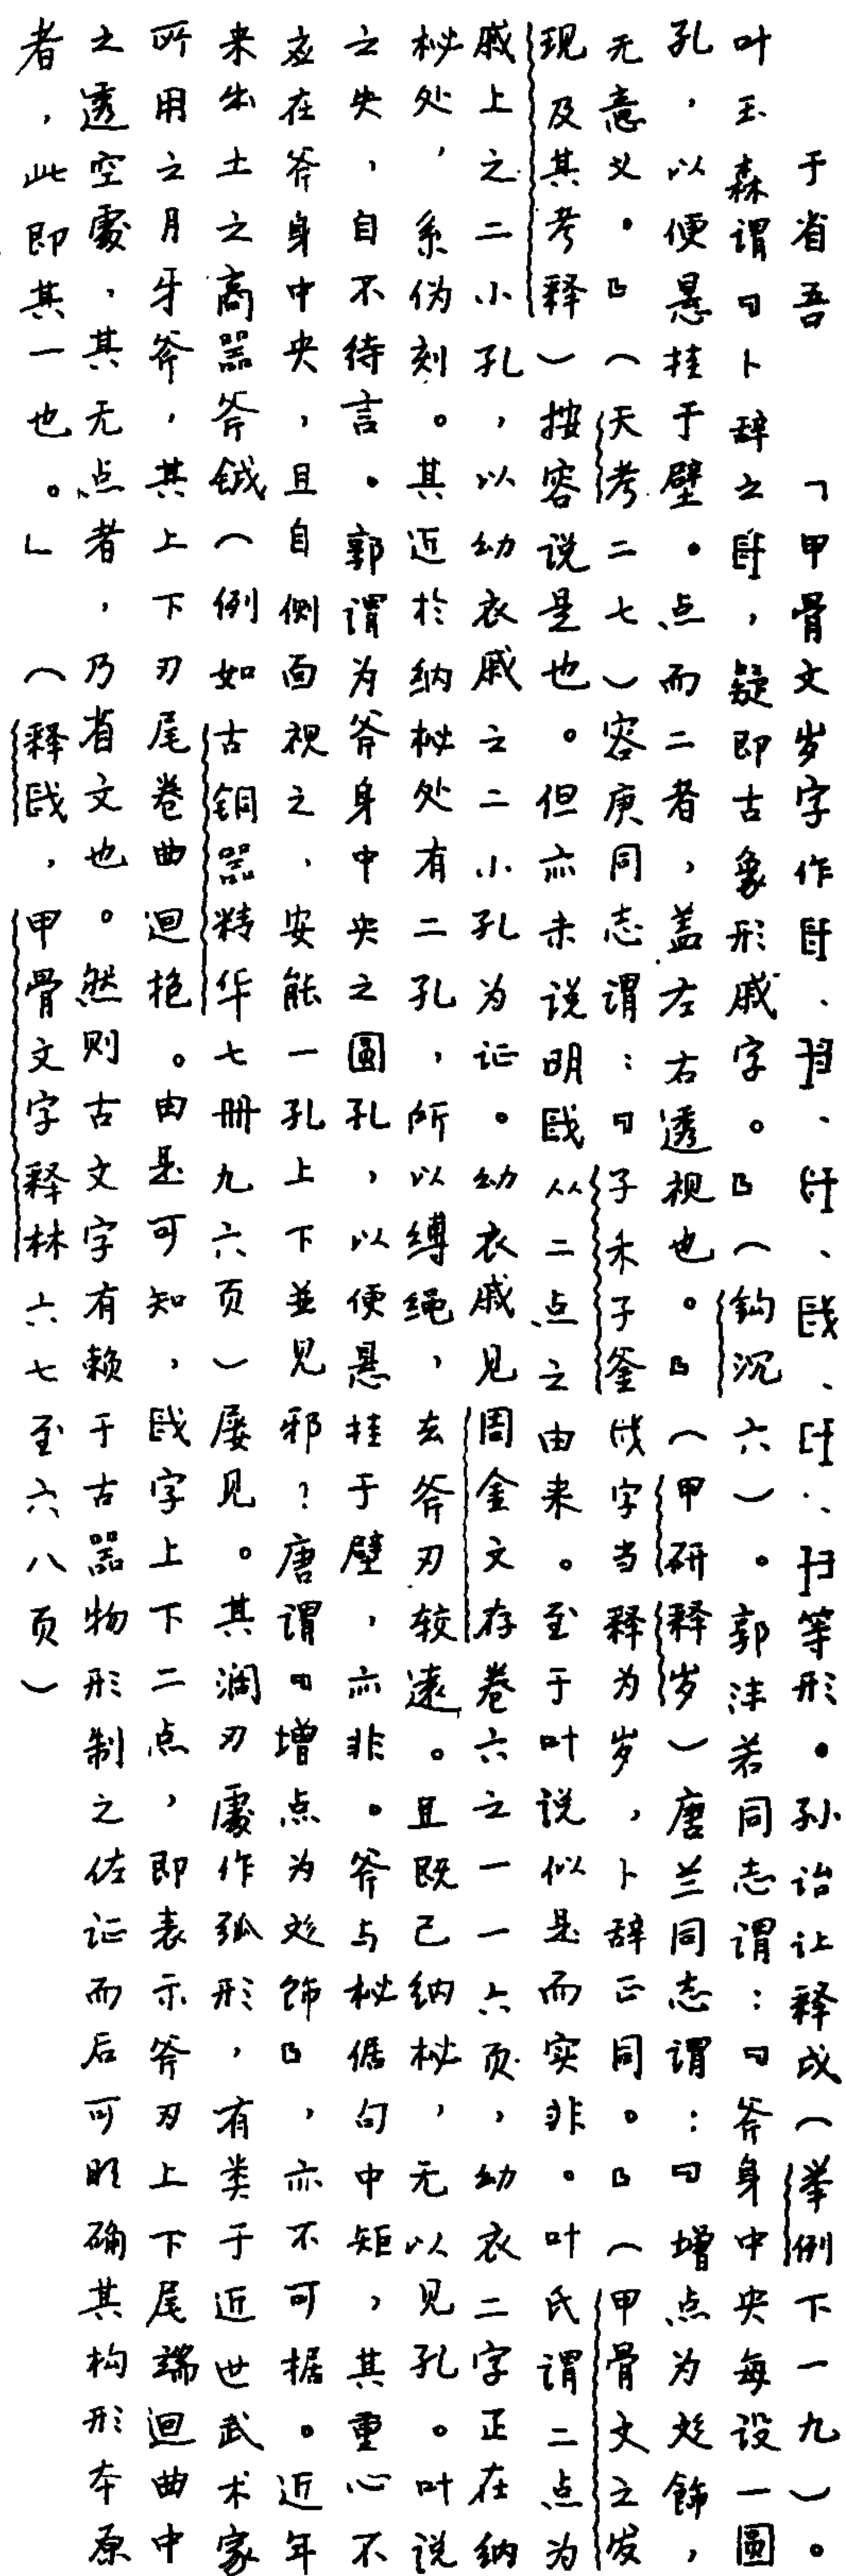 于省吾　「甲骨文岁字作、、、、、等形。孙诒让释戉（举例下一九）。
叶玉森谓『卜辞之，疑即古象形戚字。』（钩沉六）。郭沫若同志谓：『斧身中央每设一圓
孔，以便悬挂于壁。点而二者，盖左右透视也。』（甲研释岁）唐兰同志谓：『增点为彣飾，
无意义。』（天考二七）容庚同志谓：『子禾子釜戉字当释为岁，卜辞正同。』（甲骨文之发
现及其考释）按容说是也。但亦未说明从二点之由来。至于叶说似是而实非。叶氏谓二点为
戚上之二小孔，以幼衣戚之二小孔为证。幼衣戚见周金文存卷六之一一六页，幼衣二字正在纳
柲处，系伪刻。其近於纳柲处有二孔，所以缚绳，去斧刃较远。且既已纳柲，无以见孔。叶说
之失，自不待言。郭谓为斧身中央之圓孔，以便悬挂于壁，亦非。斧与柲倨句中矩，其重心不
应在斧身中央，且自侧面视之，安能一孔上下並见邪？唐谓『增点为彣饰』，亦不可据。近年
来出土之商器斧钺（例如古铜器精华七册九六页）屡见。其阔刃處作弧形，有类于近世武术家
所用之月牙斧，其上下刃尾卷曲迴抱。由是可知，字上下二点，即表示斧刃上下尾端迴曲中
之透空處，其无点者，乃省文也。然则古文字有赖于古器物形制之佐证而后可明确其构形本原
者，此即其一也。」（释，甲骨文字释林六七至六八页）